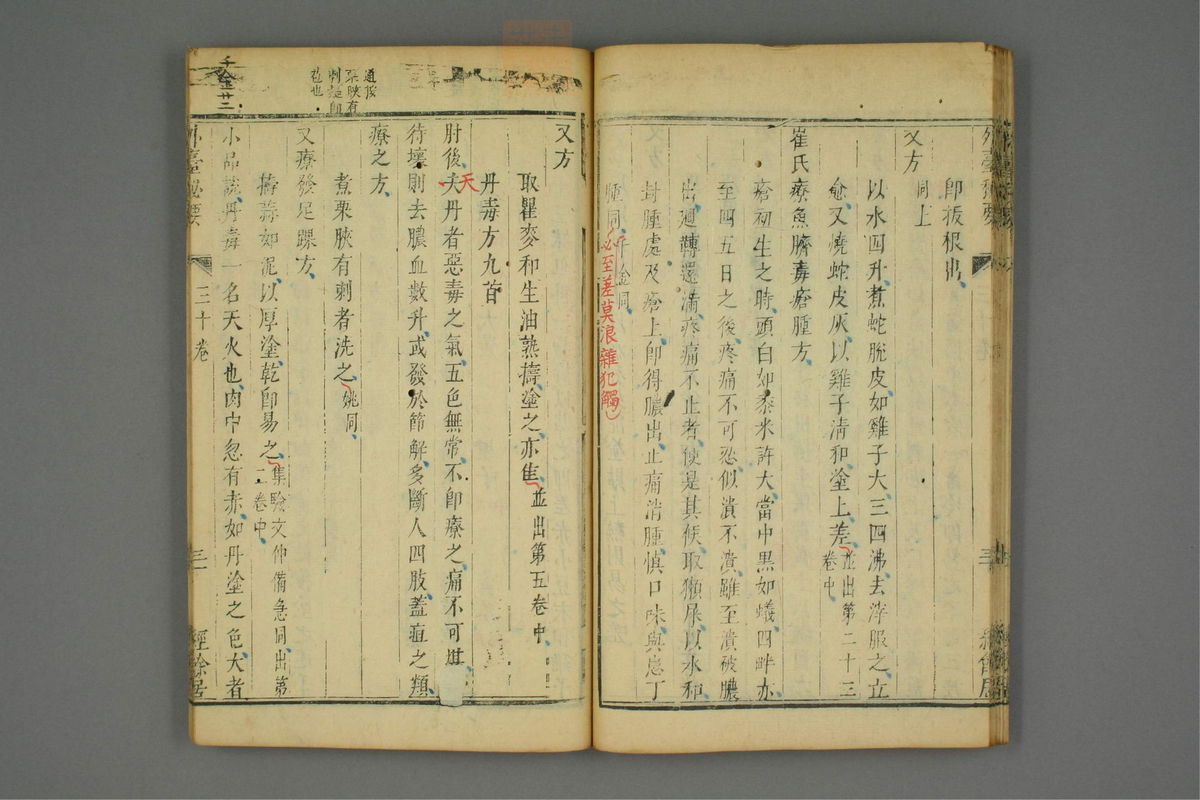 即拔根出
又方同上
以水四升煮蛇脫皮如雞子大三四沸去滓服之立
愈又燒蛇皮灰以雞子清和塗上差並出第二十三卷中
崔氏療魚臍毒瘡腫方
瘡初生之時頭白如黍米許大當中黑如蟻四畔亦
至四五日之後疼痛不可忍似潰不潰雖至潰破膿
出迴轉還滿疼痛不止者便是其候取獺屎以水和
封腫處及瘡上即得膿出止痛消腫慎口味與患丁
腫同千金同
必至差莫浪雜犯觸
又方
取瞿麥和生油熟擣塗之亦隹並出第五卷中
丹毒方九首
肘後夫丹者惡毒之氣五色無常不即療之痛不可堪
天
待壞則去膿血數升或發於節解多斷人四肢蓋疽之類
療之方
煮栗𦚾有刺者洗之姚同
又療發足踝方
擣蒜如泥以厚塗乾即易之集驗文仲備急同出第二卷中
小品說丹毒一名天火也肉中忽有赤如丹塗之色大者
外臺秘要
三十卷
三一
經餘居
千金廿二